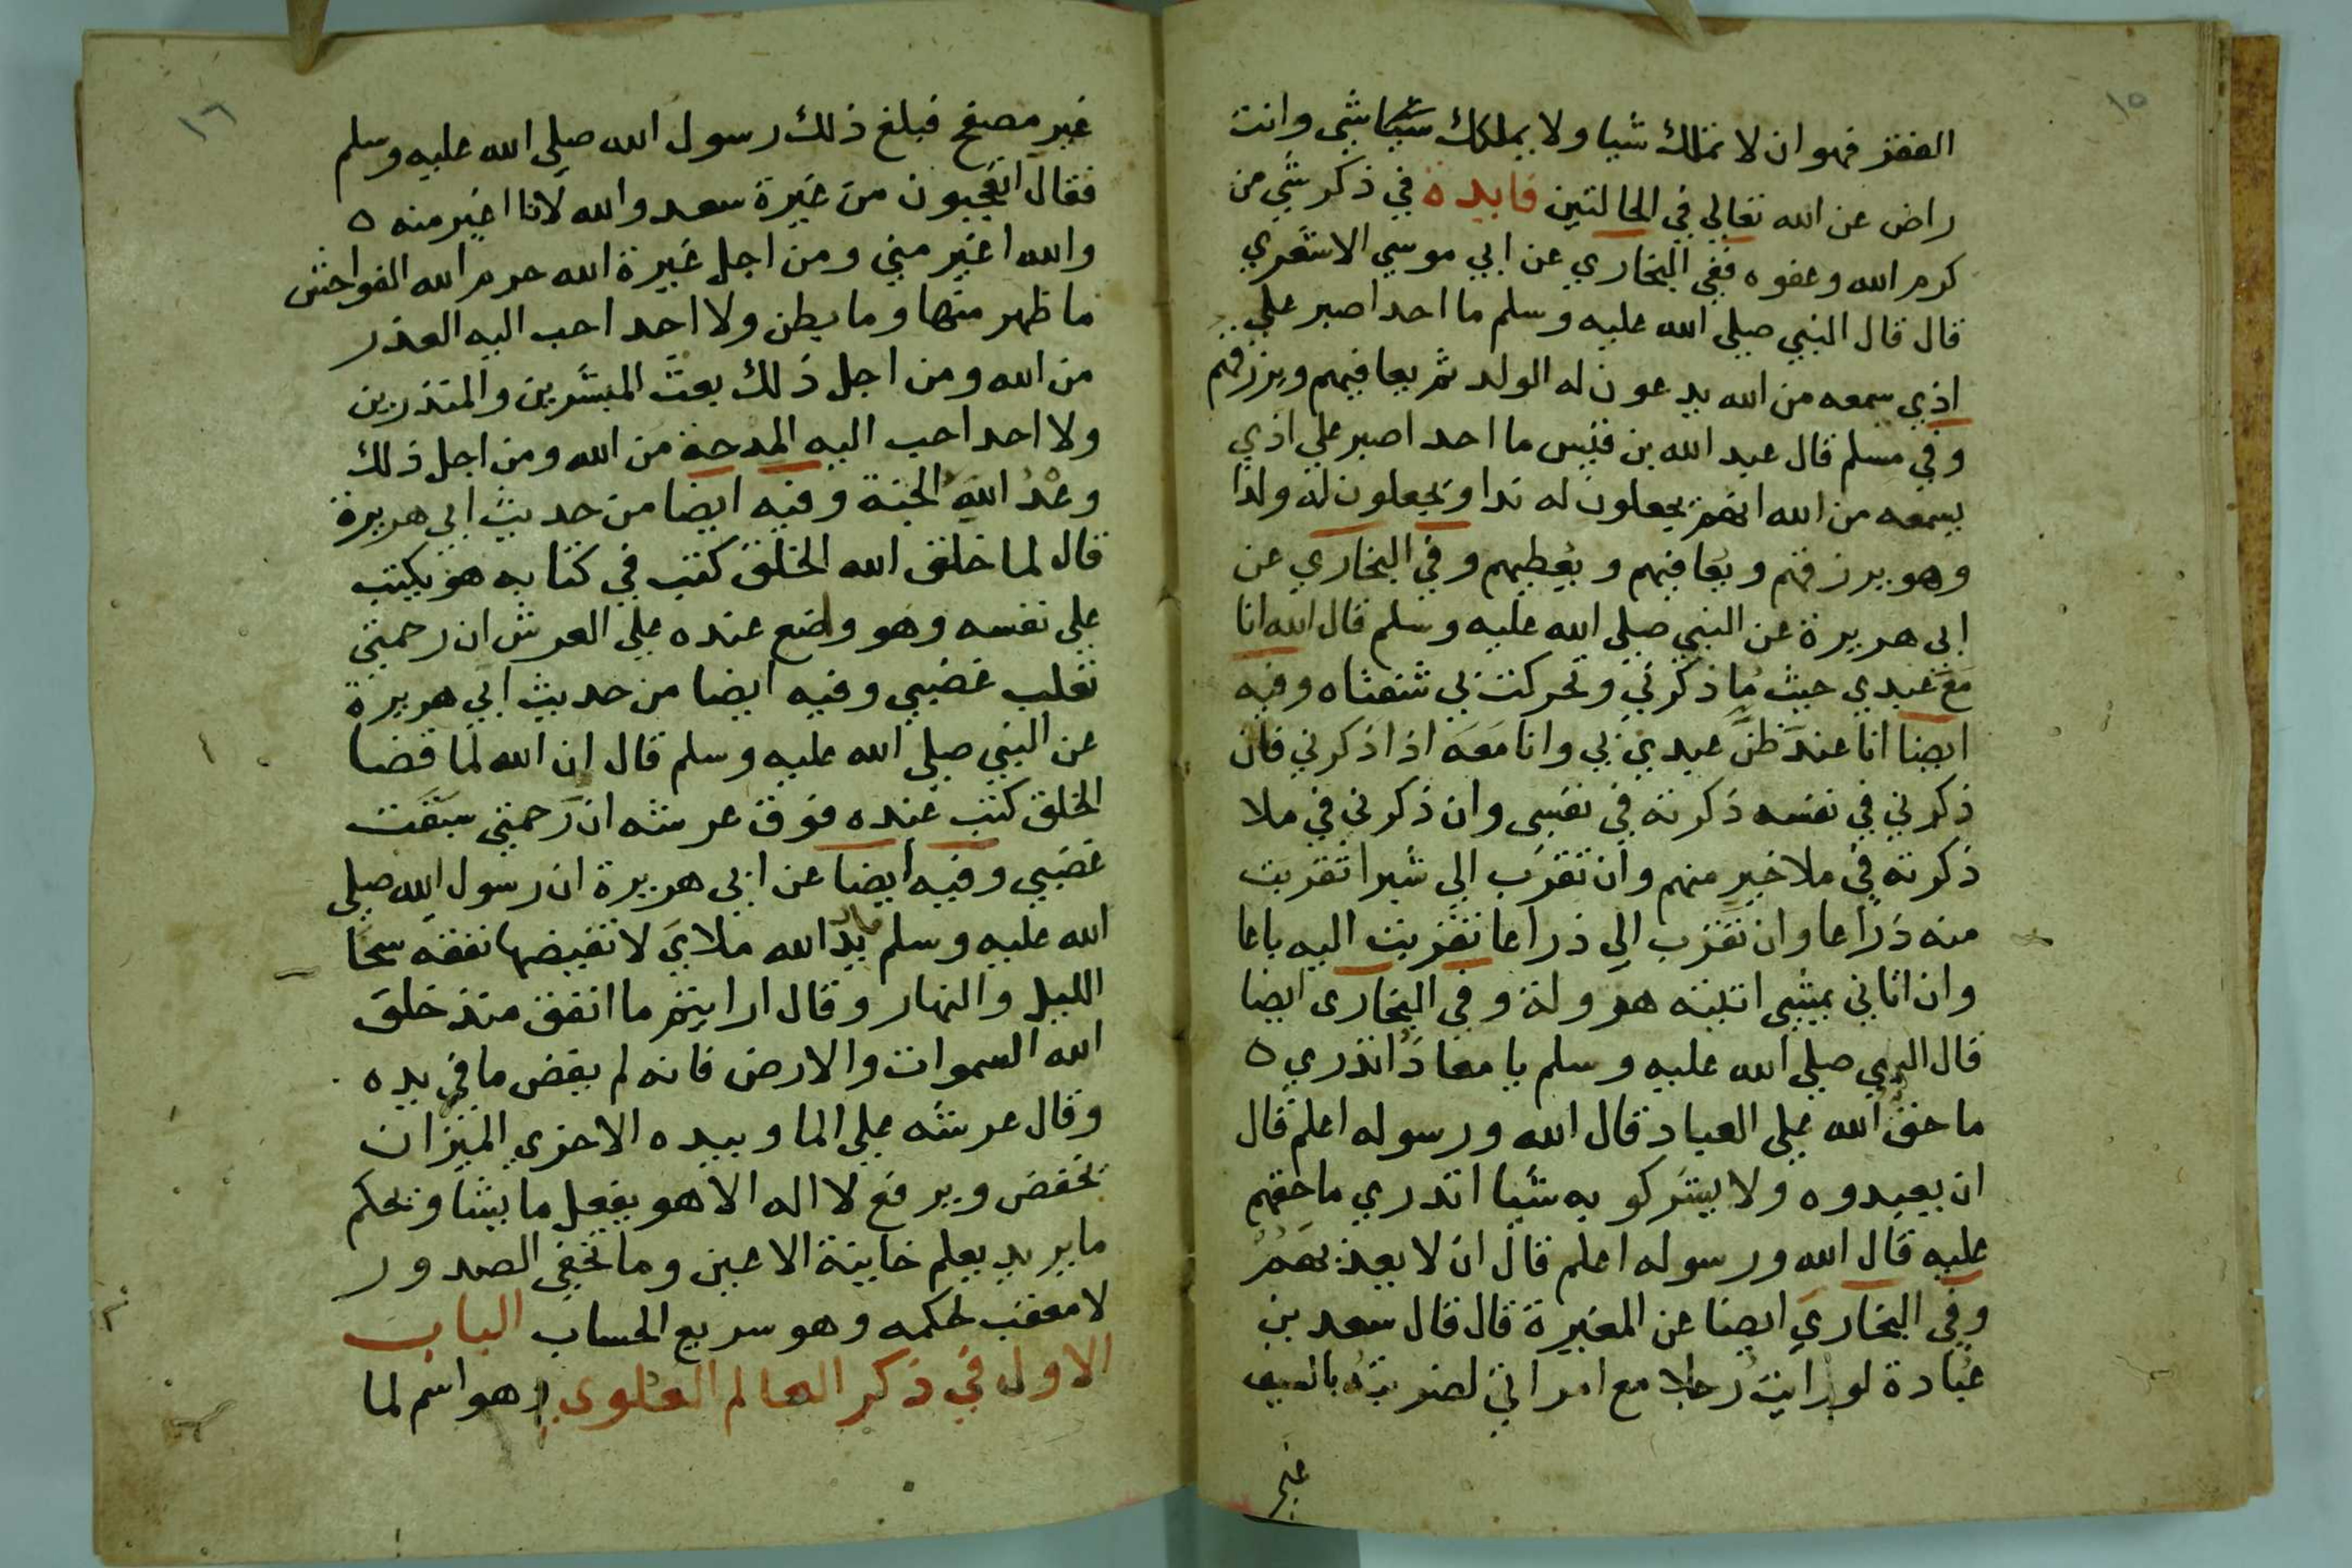 ١٥
الفقر فهو ان لا تملك شيا ولا يملكك شي وانت
راض عن الله تعالي في الحالتين فايدة في ذكر شي من
كرم الله وعفوه ففي البخاري عن ابي موسي الاشعري
قال قال النبي صلي الله عليه وسلم ما احد اصبر علي
اذي سمعه من الله يدعون له الولد ثم يعافيهم ويرزقهم
وفي مسلم قال عبد الله بن قيس ما احد اصبر علي اذي
يسمعه من الله انهم يجعلون له ندا ويجعلون له ولدا
وهو يرزقهم ويعافيهم ويعطيهم وفي البخاري عن
ابي هريرة عن النبي صلي الله عليه وسلم قال الله انا
مع عبدي حيث ما ذكرني وتحركت بي شفتاه وفيه
ايضا انا عند ظن عبدي بي وانا معه اذا ذكرني فان
ذكرني في نفسه ذكرته في نفسي وان ذكرني في ملا
ذكرته في ملا خير منهم وان تقرب الي شبرا تقربت
منه ذراعا وان تقرب الي ذراعا تقربت اليه باعا
وان اتاني يمشي اتيته هرولة وفي البخاري ايضا
قال النبي صلي الله عليه وسلم يا معاذ اتدري ه
ما حق الله علي العباد قال الله ورسوله اعلم قال
ان يعبدوه ولا يشركو به شيا اتدري ما حقهم
عليه قال الله ورسوله اعلم قال ان لا يعذبهم
وفي البخاري ايضا عن المغيرة قال قال سعد بن
عبادة لو رايت رجلا مع امراتي لضربته بالسيف
غير
١٦
غير مصفح فبلغ ذلك رسول الله صلي الله عليه وسلم
فقال اتعجبون من غيرة سعد والله لانا اغير منه ه
والله اغير مني ومن اجل غيرة الله حرم الله الفواحش
ما ظهر منها وما بطن ولا احد احب اليه العذر
من الله ومن اجل ذلك بعث المبشرين والمنذرين
ولا احد احب اليه المدحة من الله ومن اجل ذلك
وعد الله الجنة وفيه ايضا من حديث ابي هريرة
قال لما خلق الله الخلق كتب في كتابه هو يكتب
علي نفسه وهو واضع عنده علي العرش ان رحمتي
تغلب غضبي وفيه ايضا من حديث ابي هريرة
عن النبي صلي الله عليه وسلم قال ان الله لما قضا
الخلق كتب عنده فوق عرشه ان رحمتي سبقت
غضبي وفيه ايضا عن ابي هريرة ان رسول الله صلي
الله عليه وسلم قال يد الله ملاي لا تغيضها نفقه سحا
الليل والنهار وقال ارايتم ما انفق منذ خلق
الله السموات والارض فانه لم يغض ما في يده
وقال عرشه علي الما وبيده الاخري الميزان
يخفض ويرفع لا اله الا هو يفعل ما يشا ويحكم
ما يريد يعلم خاينة الاعين وما تخفي الصدور
لا معقب لحكمه وهو سريع الحساب الباب
الاول في ذكر العالم العلوي وهو اسم لما